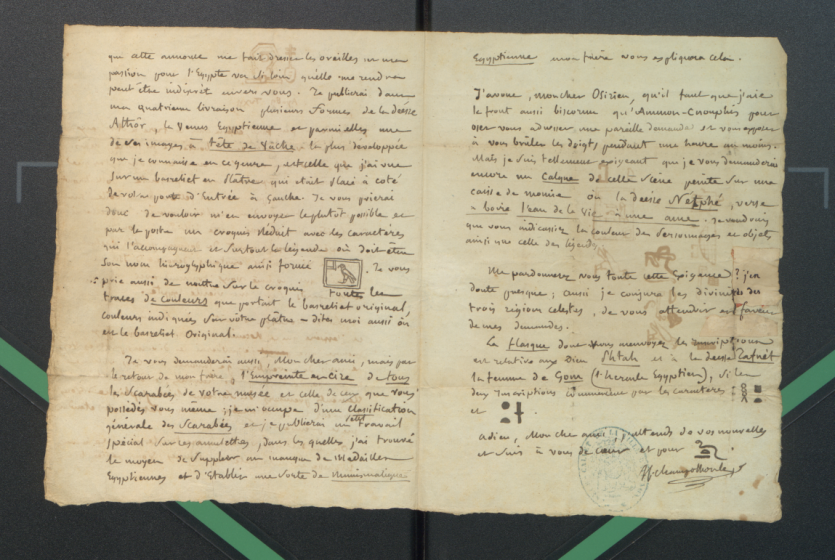 que cette annonce me fait dresser les oreilles un mien
passion pour l'Egypte
peut être indiscret envers vous. Je publierai dans
ma quatrieme livraison plusieurs formes de la déesse
Athôr, la Venus Egyptienne et parmi elles une
de ses images à tête de Vache. la plus developpée
que je connaisse en ce genre, est celle que j'ai vue
sur un basrelief en plâtre qui était placé à coté
de votre porte d'Entrée à gauche. Je vous prierai
donc de vouloir m'en envoyer le plutot possible et
par la poste un croquis réduit avec les caracteres
qui l'accompagnent et surtout la légende où doit être
son nom hieroglyphique ainsi formé . Je vous
prie aussi de mettre sur le croquis toutes les
traces de couleurs que portait le basrelief original,
couleurs indiquées sur votre plâtre – dites moi aussi où
est le basrelief original.
Je vous demanderai aussi, Mon cher ami, mais par
le retour de mon frère, l'Empreinte en cire de tous
les Scarabées de votre musée et celle de ceux que vous
possédez vous meme; je m'occupe d'une classification
générale des Scarabées et je publierai un petit travail
spécial sur les amulettes, dans lesquelles j'ai trouvé
le moyen de suppléer au manque de Medailles
Egyptiennes et d'Etablir une sorte de Numismatique
Egyptienne mon frère vous expliquera cela.
J'avoue, mon cher Osirien, qu'il faut que j'aie
le front aussi biscornu qu'Ammon-Cnouphis pour
oser vous adresser une pareille demande et vous exposer
à vous brûler les doigts pendant une heure au moins.
Mais je suis tellement exigeant que je vous demanderai
encore un Calque de celle scène peinte sur une
caisse de momie où la déesse Netphé, verse
à boire l'eau de la vie à une ame. je voudrais
que vous indicassiez la couleur des Personnages et objets
ainsi que celle des légendes.
Me pardonnerez vous toute cette Exigeance ? j'en
doute presque; aussi je conjure les divinités des
trois régions celestes, de vous attendrir en faveur
de mes demandes.
La flasque dont vous m'envoyez
est relative au Dieu Phtah et à la déesse Tafnèt
la femme de Gom (l'hercule Egyptien), si les
deux Inscriptions commencent par les caracteres
et .
adieu, Mon cher ami, j'attends de vos nouvelles
et suis à vous de cœur et pour